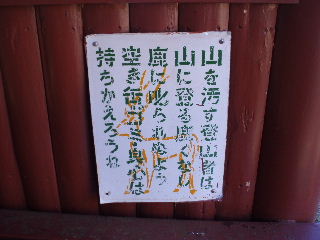 山を汚す登山者は
山に登る鹿でない
鹿に叱られぬよう
空き缶ゴミ良心は
持ちかえろうね